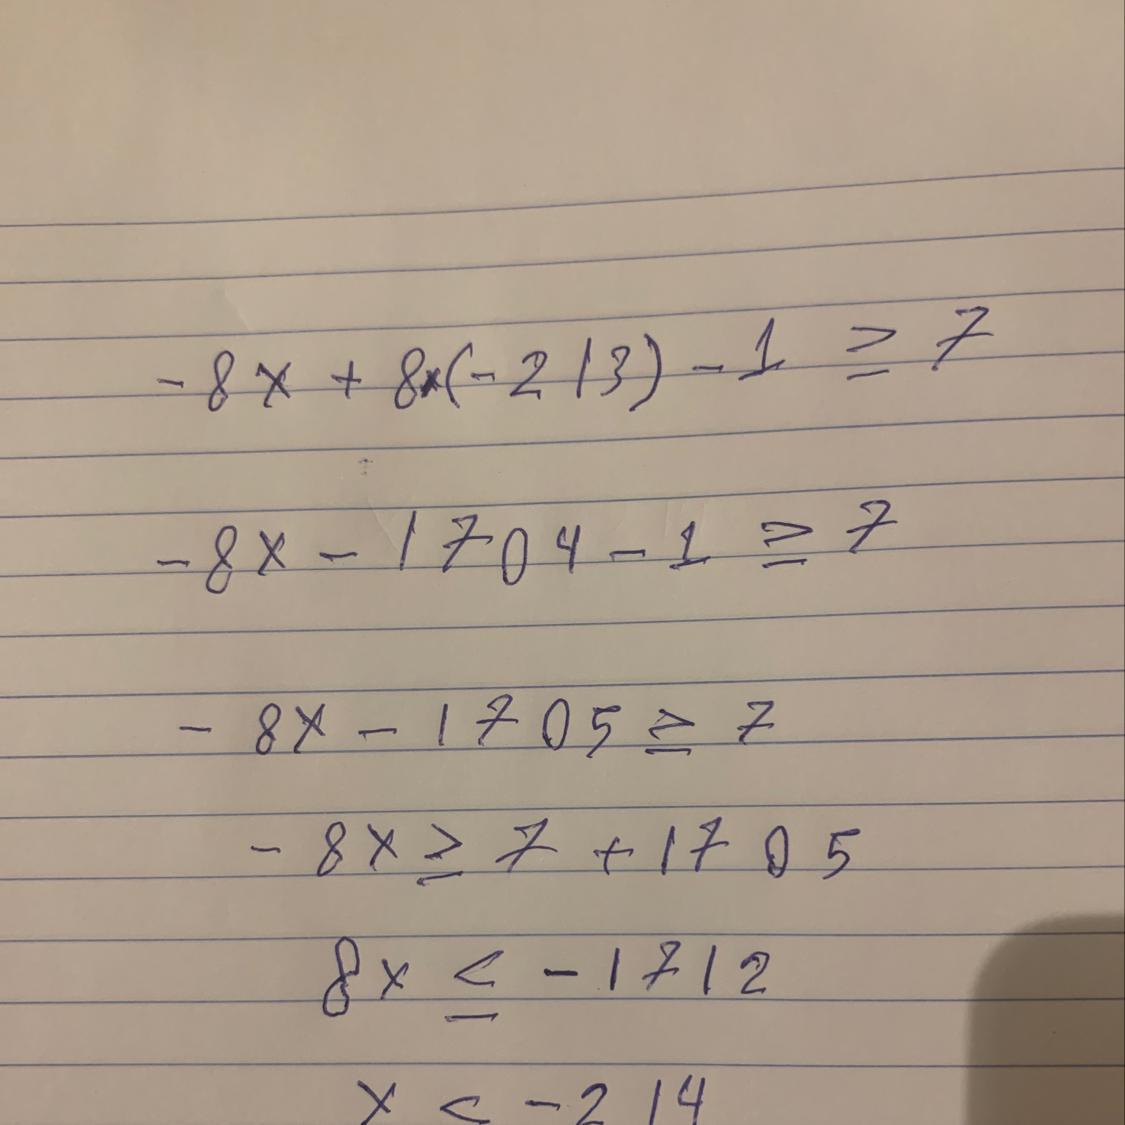 -8x + 8x(-213) - 1 ≥ 7
-8x - 1704 - 1 ≥ 7
-8x - 1705 ≥ 7
-8x ≥ 7 + 1705
8x ≤ -1712
x < -214